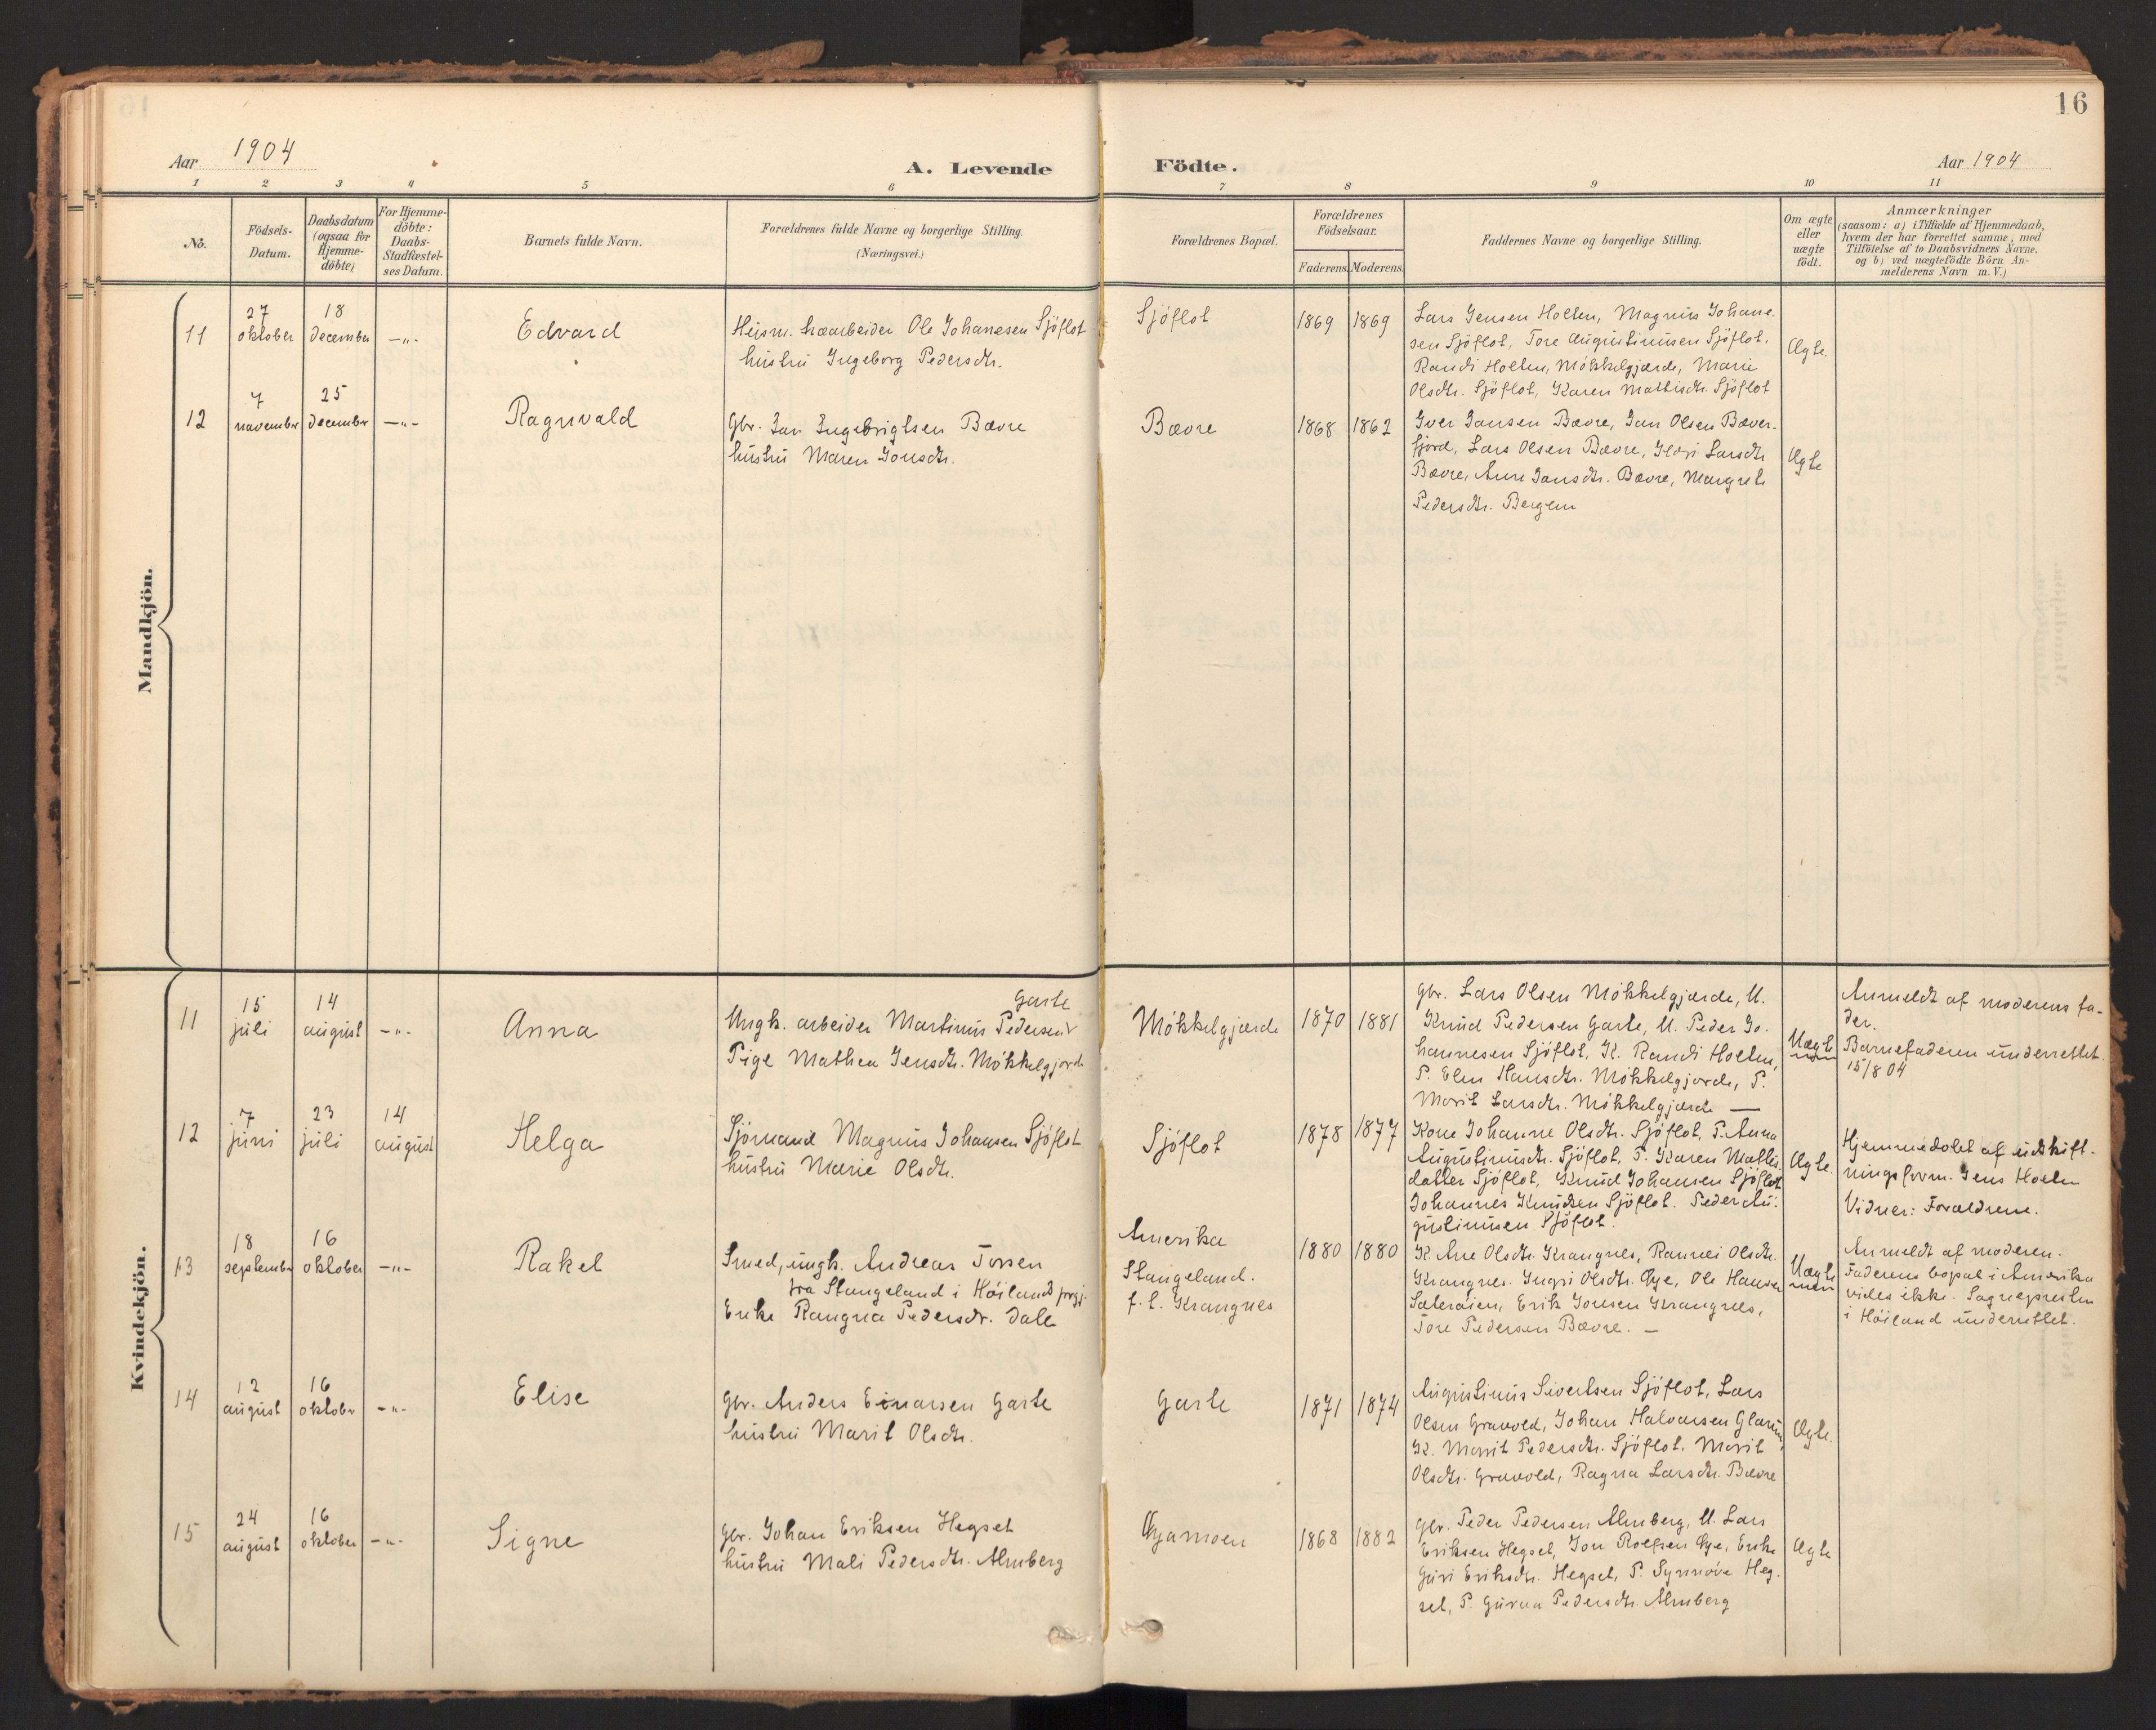 16
Aar 1904
A. Levende Födte.
Aar 1904
1 2 3 4 5 6 7 8 9 10 11
No.
Födsels-
Datum.
Daabsdatum
(ogsaa for
Hjemme-
döbte)
For Hjemme-
döbte:
Daabs-
Stadfæstel-
ses Datum.
Barnets fulde Navn.
Forældrenes fulde Navne og borgerlige Stilling.
(Næringsvei.)
Forældrenes Bopæl.
Forældrenes
Födselsaar.
Faderens. Moderens.
Faddernes Navne og borgerlige Stilling.
Om ægte
eller
uægte
födt.
Anmærkninger
(saasom: a) i Tilfælde af Hjemmedaab,
hvem der har forrettet samme, med
Tilföielse af to Daabsvidners Navne.
og b) ved uægtefödte Börn An-
melderens Navn m.V.)
Mandkjön.
11
27
oktober
18
december
-"-
Edvard
Heism. træarbeider Ole Johanesen Sjöflot
hustru Ingeborg Pedersdtr.
Sjöflot
1869 1869
Lars Jensen Holten, Magnus Johane-
sen Sjöflot, Tore Augustinusen Sjöflot.
Randi Holten, Mökkelgjærde, Marie
Olsdtr. Sjöflot, Karen Mattisdtr. Sjöflot
Ægte.
12
7
november
25
december
-"-
Ragnvald
Gbr. Jan Ingebrigtsen Bævre
hustru Maren Jonsdtr.
Bævre
1868 1862
Iver Jansen Bævre, Jan Olsen Bæver-
fjord, Lars Olsen Bævre, Larsdtr.
Bævre, Ane Jansdtr. Bævre, Margrete
Pedersdtr. Bergem
Ægte
Kvindekjön.
11
15
juli
14
august
-"-
Anna
Garte
Ungk. arbeider Martinus Pedersen
Pige Mathea Jensdtr. Mökkelgjærde
Mökkelgjærde
1870 1881
Gbr. Lars Olsen Mökkelgjærde, U.
Knud Pedersen Garte, U. Peder Jo-
hannesen Sjöflot, K. Randi Holten,
P. Elen Hansdtr. Mökkelgjærde, P.
Marit Larsdtr. Mökkelgjærde —
Uægte
Anmeldt af moderens fa-
der.
Barnefaderen underrettet
15/8 04
12
7
juni
23
juli
14
august
Helga
Sjömand Magnus Johansen Sjöflot
hustru Marie Olsdtr.
Sjöflot
1878 1877
Kone Johanne Olsdtr. Sjöflot, P. Anna
Augustinusdtr. Sjöflot, P. Karen Mattis-
datter Sjöflot, Knud Johansen Sjöflot
Johannes Knudsen Sjöflot. Peder Au-
gustinusen Sjöflot.
Ægte.
Hjemmedöbt af udskift-
ningsform. Jens Holten
Vidner: Forældrene.
13
18
september
16
oktober
-"-
Rakel
Smed, ungk. Andreas Torsen
fra Stangeland i Höiland prgj.
Enke Rangna Pedersdr. Dale
Amerika
Stangeland.
f.t. Krangnes
1880 1880
K. Ane Olsdtr. Krangnes, Rannei Olsdtr.
Krangnes. Ingri Olsdtr. Öye, Ole Hansen
Sæteröien, Erik Jonsen Krangnes,
Tore Pedersen Bævre. —
Uægte
Anmeldt af moderen.
Faderens bopæl i Amerika
vides ikke. Sognepresten
i Höiland underrettet.
14
12
august
16
oktober
-"-
Elise
Gbr. Anders Einarsen Garte
hustru Marit Olsdtr.
Garte
1871 1874
Augustinus Sivertsen Sjöflot, Lars
Olsen Granvold, Johan Halvorsen Glærum,
K. Marit Pedersdtr. Sjöflot. Marit
Olsdtr. Granvold, Ragna Larsdtr. Bævre
Ægte.
15
24
august
16
oktober
-"-
Signe
Gbr. Johan Eriksen Hegset
hustru Mali Pedersdtr. Almberg
Öyamoen
1868 1882
Gbr. Peder Pedersen Almberg, U. Lars
Eriksen Hegset, Jon Rolfsen Öye, Enke
Guri Eriksdtr. Hegset, P. Synnöve Heg-
set, P. Guruna Pedersdtr. Almberg
Ægte